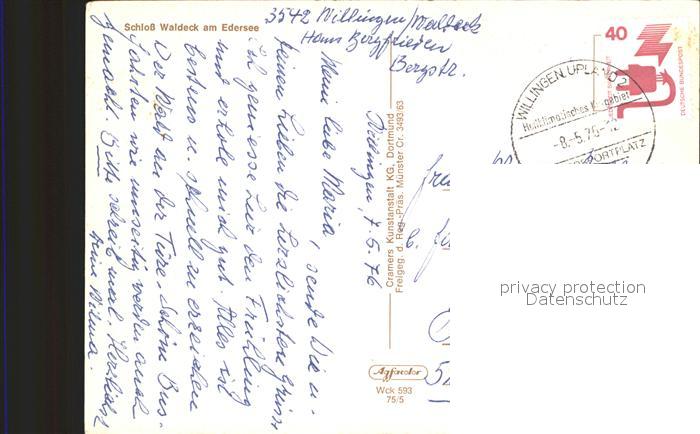 Schloß Waldeck am Edersee
3542 Willingen/Waldeck
Haus Bergfrieden
Bergstr.
40
DEUTSCHE BUNDESPOST
WILLINGEN, UPLAND 2
Heilklimatisches Kurgebiet
-8.-5.76-
SPORTPLATZ
Willingen, 7.5.76
Meine liebe Maria, sende Dir u.
Deinen Lieben die herzlichsten Grüsse
ich geniesse hier den Frühling
und erhole mich gut. Alles ist
bestens u. schnell zu erreichen
Der Wald an der Türe. Schöne Bus-
fahrten wie umseitig werden auch
gemacht. Bitte schreib mal. Herzlichst
Deine Wilma.
Cramers Kunstanstalt KG, Dortmund
Freigeg. d. Reg.-Präs. Münster Cr. 3493/63
Agfacolor
Wck 593
75/5
privacy protection
Datenschutz